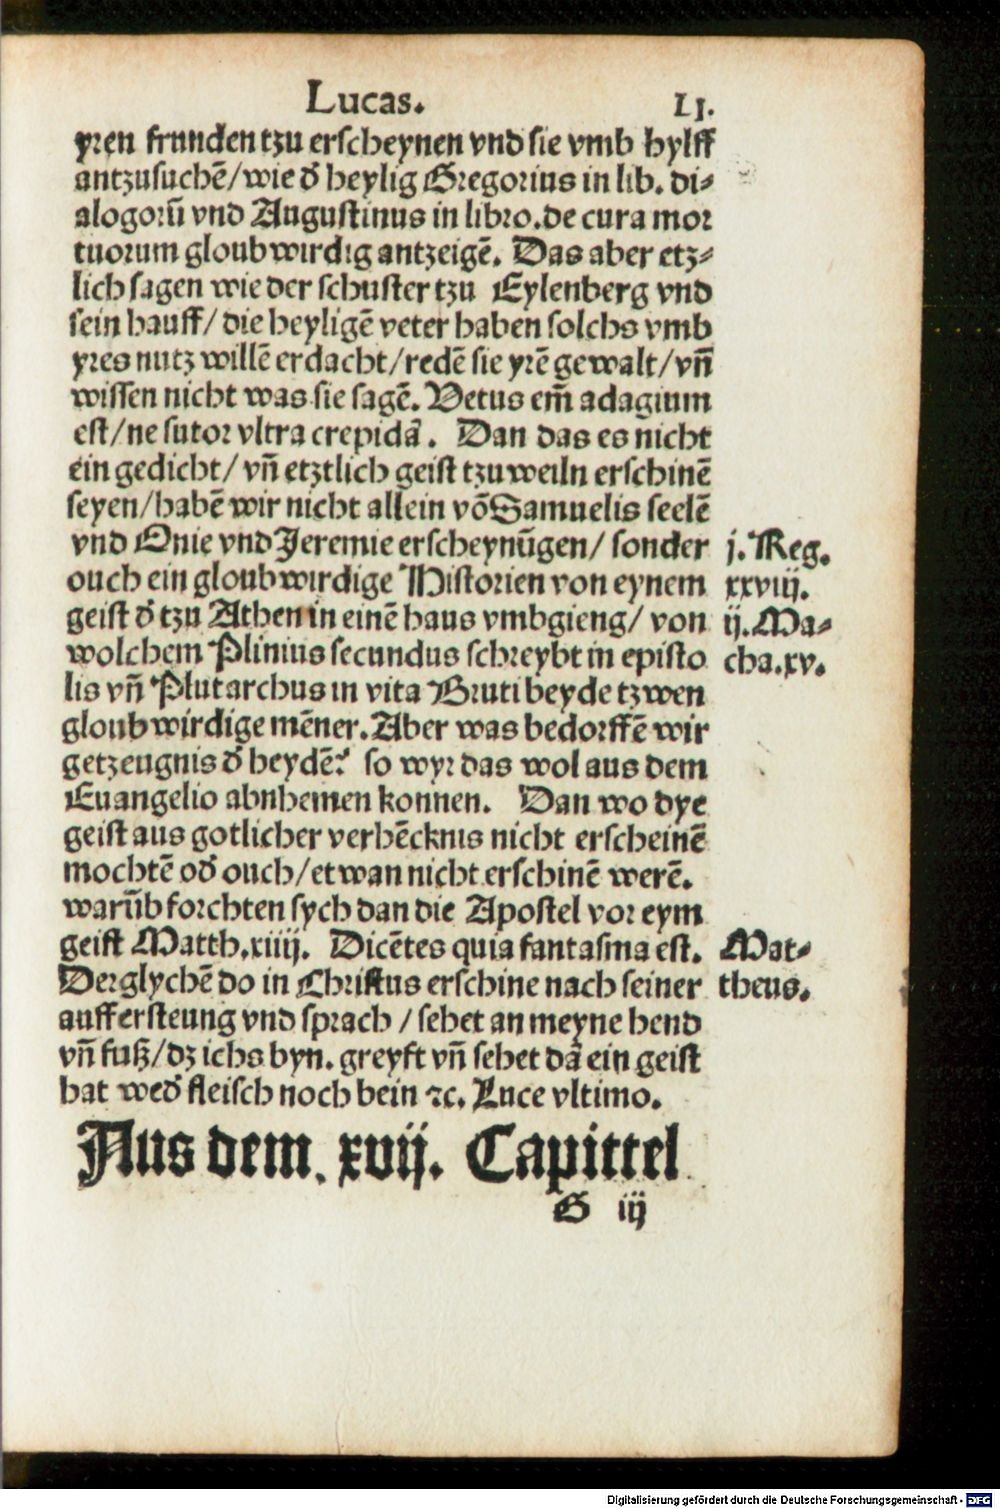 Lucas. LI.
yren frunden tzu erscheynen vnd sie vmb hylff
antzusuchē/wie d̕ heylig Gregorius in lib. di⸗
alogorū vnd Augustinus in libro.de cura mor
tuorum gloubwirdig antzeigē. Das aber etz⸗
lich sagen wie der schuster tzu Eylenberg vnd
sein hauff/ die heyligē veter haben solchs vmb
yres nutz willē erdacht/redē sie yrē gewalt/vn̄
wissen nicht was sie sagē. Vetus em̄ adagium
est/ne sutor vltra crepidā. Dan das es nicht
ein gedicht/ vn̄ etztlich geist tzuweiln erschinē
seyen/habē wir nicht allein vō Samuelis seelē
vnd Onie vnd Jeremie erscheynūgen/ sonder
j. Reg.
ouch ein gloubwirdige Historien von eynem
xxviij.
geist d̕ tzu Athen in einē haus vmbgieng/ von
ij. Ma⸗
wolchem Plinius secundus schreybt in episto
cha.xv.
lis vn̄ Plutarchus in vita Bruti beyde tzwen
gloubwirdige mēner. Aber was bedorffē wir
getzeugnis d̕ heydē? so wyr das wol aus dem
Euangelio abnhemen konnen. Dan wo dye
geist aus gotlicher verhēcknis nicht erscheinē
mochtē od̕ ouch/etwan nicht erschinē werē.
warūb forchten sych dan die Apostel vor eym
geist Matth.xiiij. Dicētes quia fantasma est.
Mat⸗
Derglychē do in Christus erschine nach seiner
theus.
auffersteung vnd sprach / sehet an meyne hend
vn̄ fuß/dz ichs byn. greyft vn̄ sehet dā ein geist
hat wed̕ fleisch noch bein ꝛc. Luce vltimo.
Aus dem. xvij. Capittel
G iij
Digitalisierung gefördert durch die Deutsche Forschungsgemeinschaft - DFG